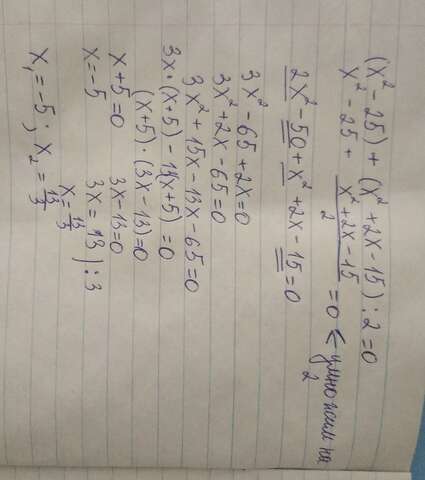 (x² - 25) + (x² + 2x - 15) : 2 = 0
x² - 25 + (x² + 2x - 15)/2 = 0 ← умножаем на 2
2x² - 50 + x² + 2x - 15 = 0
3x² - 65 + 2x = 0
3x² + 2x - 65 = 0
3x² + 15x - 13x - 65 = 0
3x · (x + 5) - 13(x + 5) = 0
(x + 5) · (3x - 13) = 0
x + 5 = 0 3x - 13 = 0
x = -5 3x = 13 ) : 3
x = 13/3
x₁ = -5 ; x₂ = 13/3